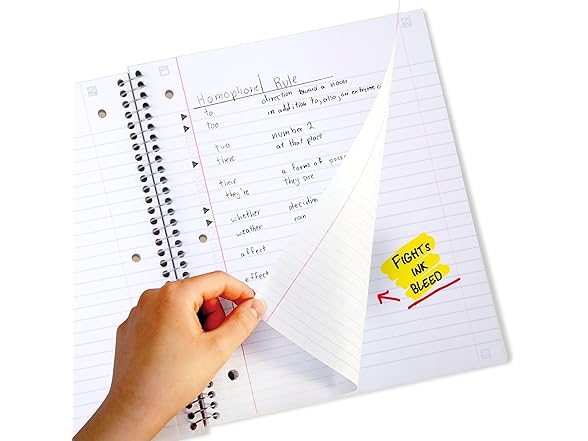 Homophone Rule
to direction toward a noun
too in addition to, also, an extreme
two number 2
there at that place
their a form of
they're they are
whether decision
weather rain
affect
effect
FIGHTS
INK
BLEED